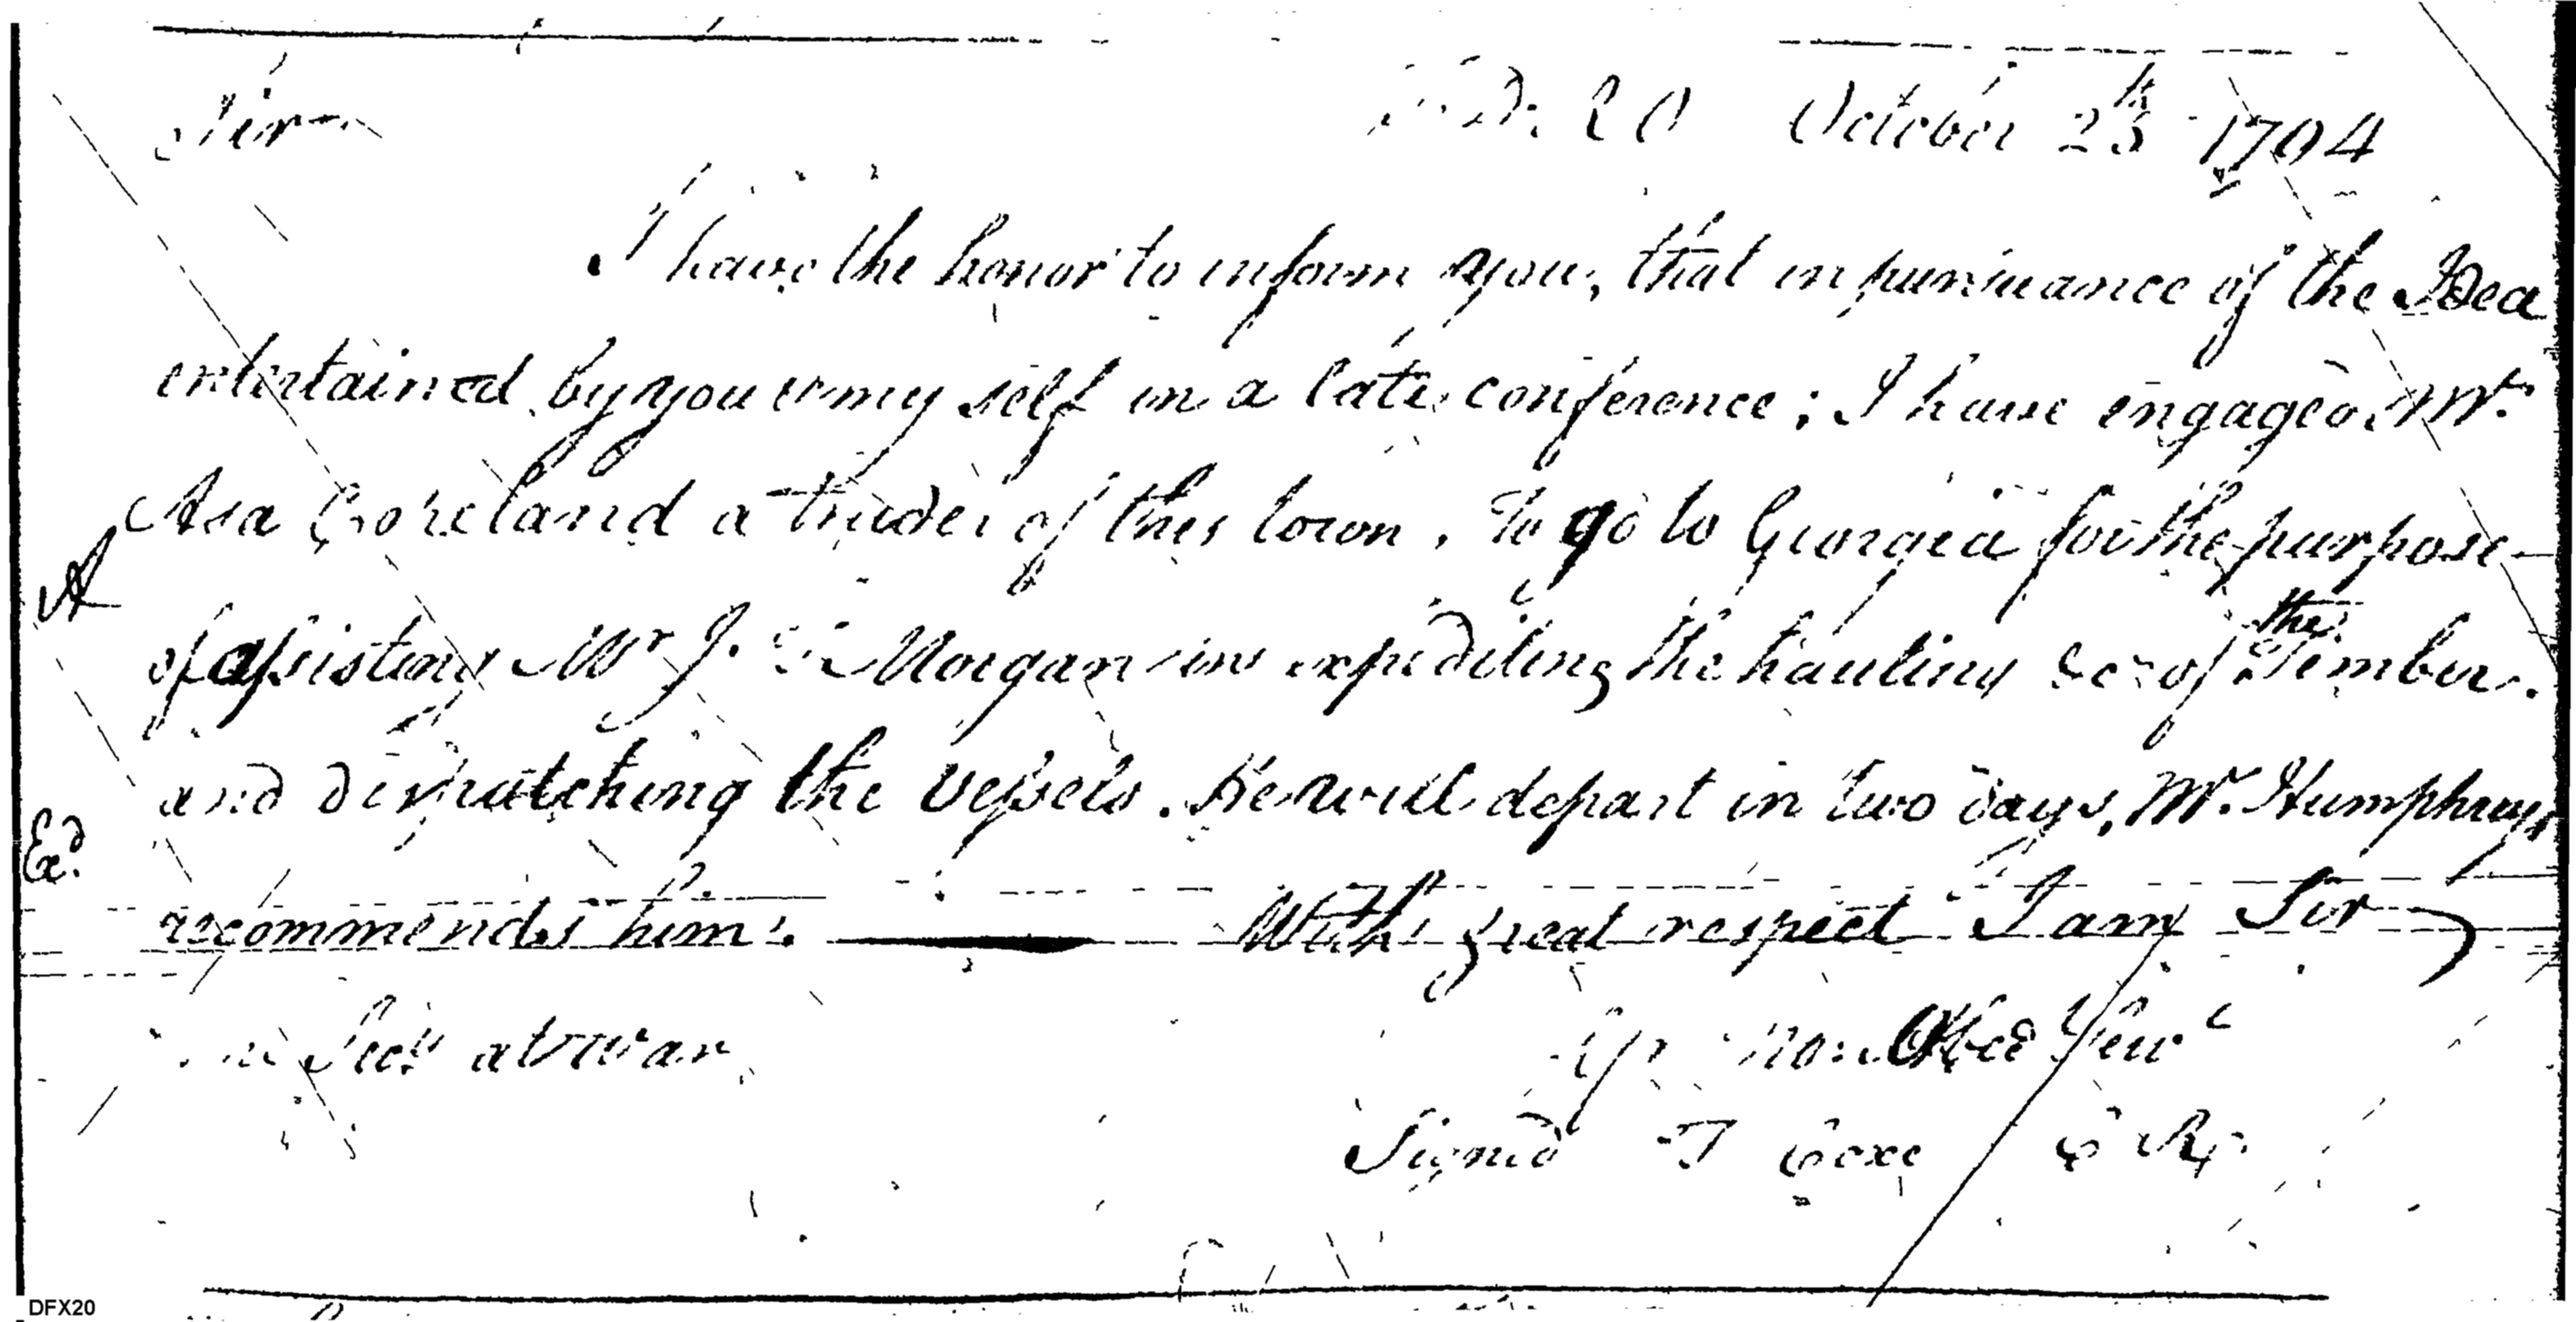 Sir October 25th 1794
I have the honor to inform you, that in pursuance of the Idea
entertained by you & my self in a late conference; I have engaged Mr.
Asa Copeland a trader of this town, To go to Georgia for the purpose
A
of assisting Mr J. Morgan in expediting the hauling &c of the Timber.
and dispatching the Vessels. He will depart in two days, Mr. Humphreys
Exd.
recommends him. With great respect I am Sir
Secy at War Yr mo. Obed Servt
Signed T Coxe C R
DFX20